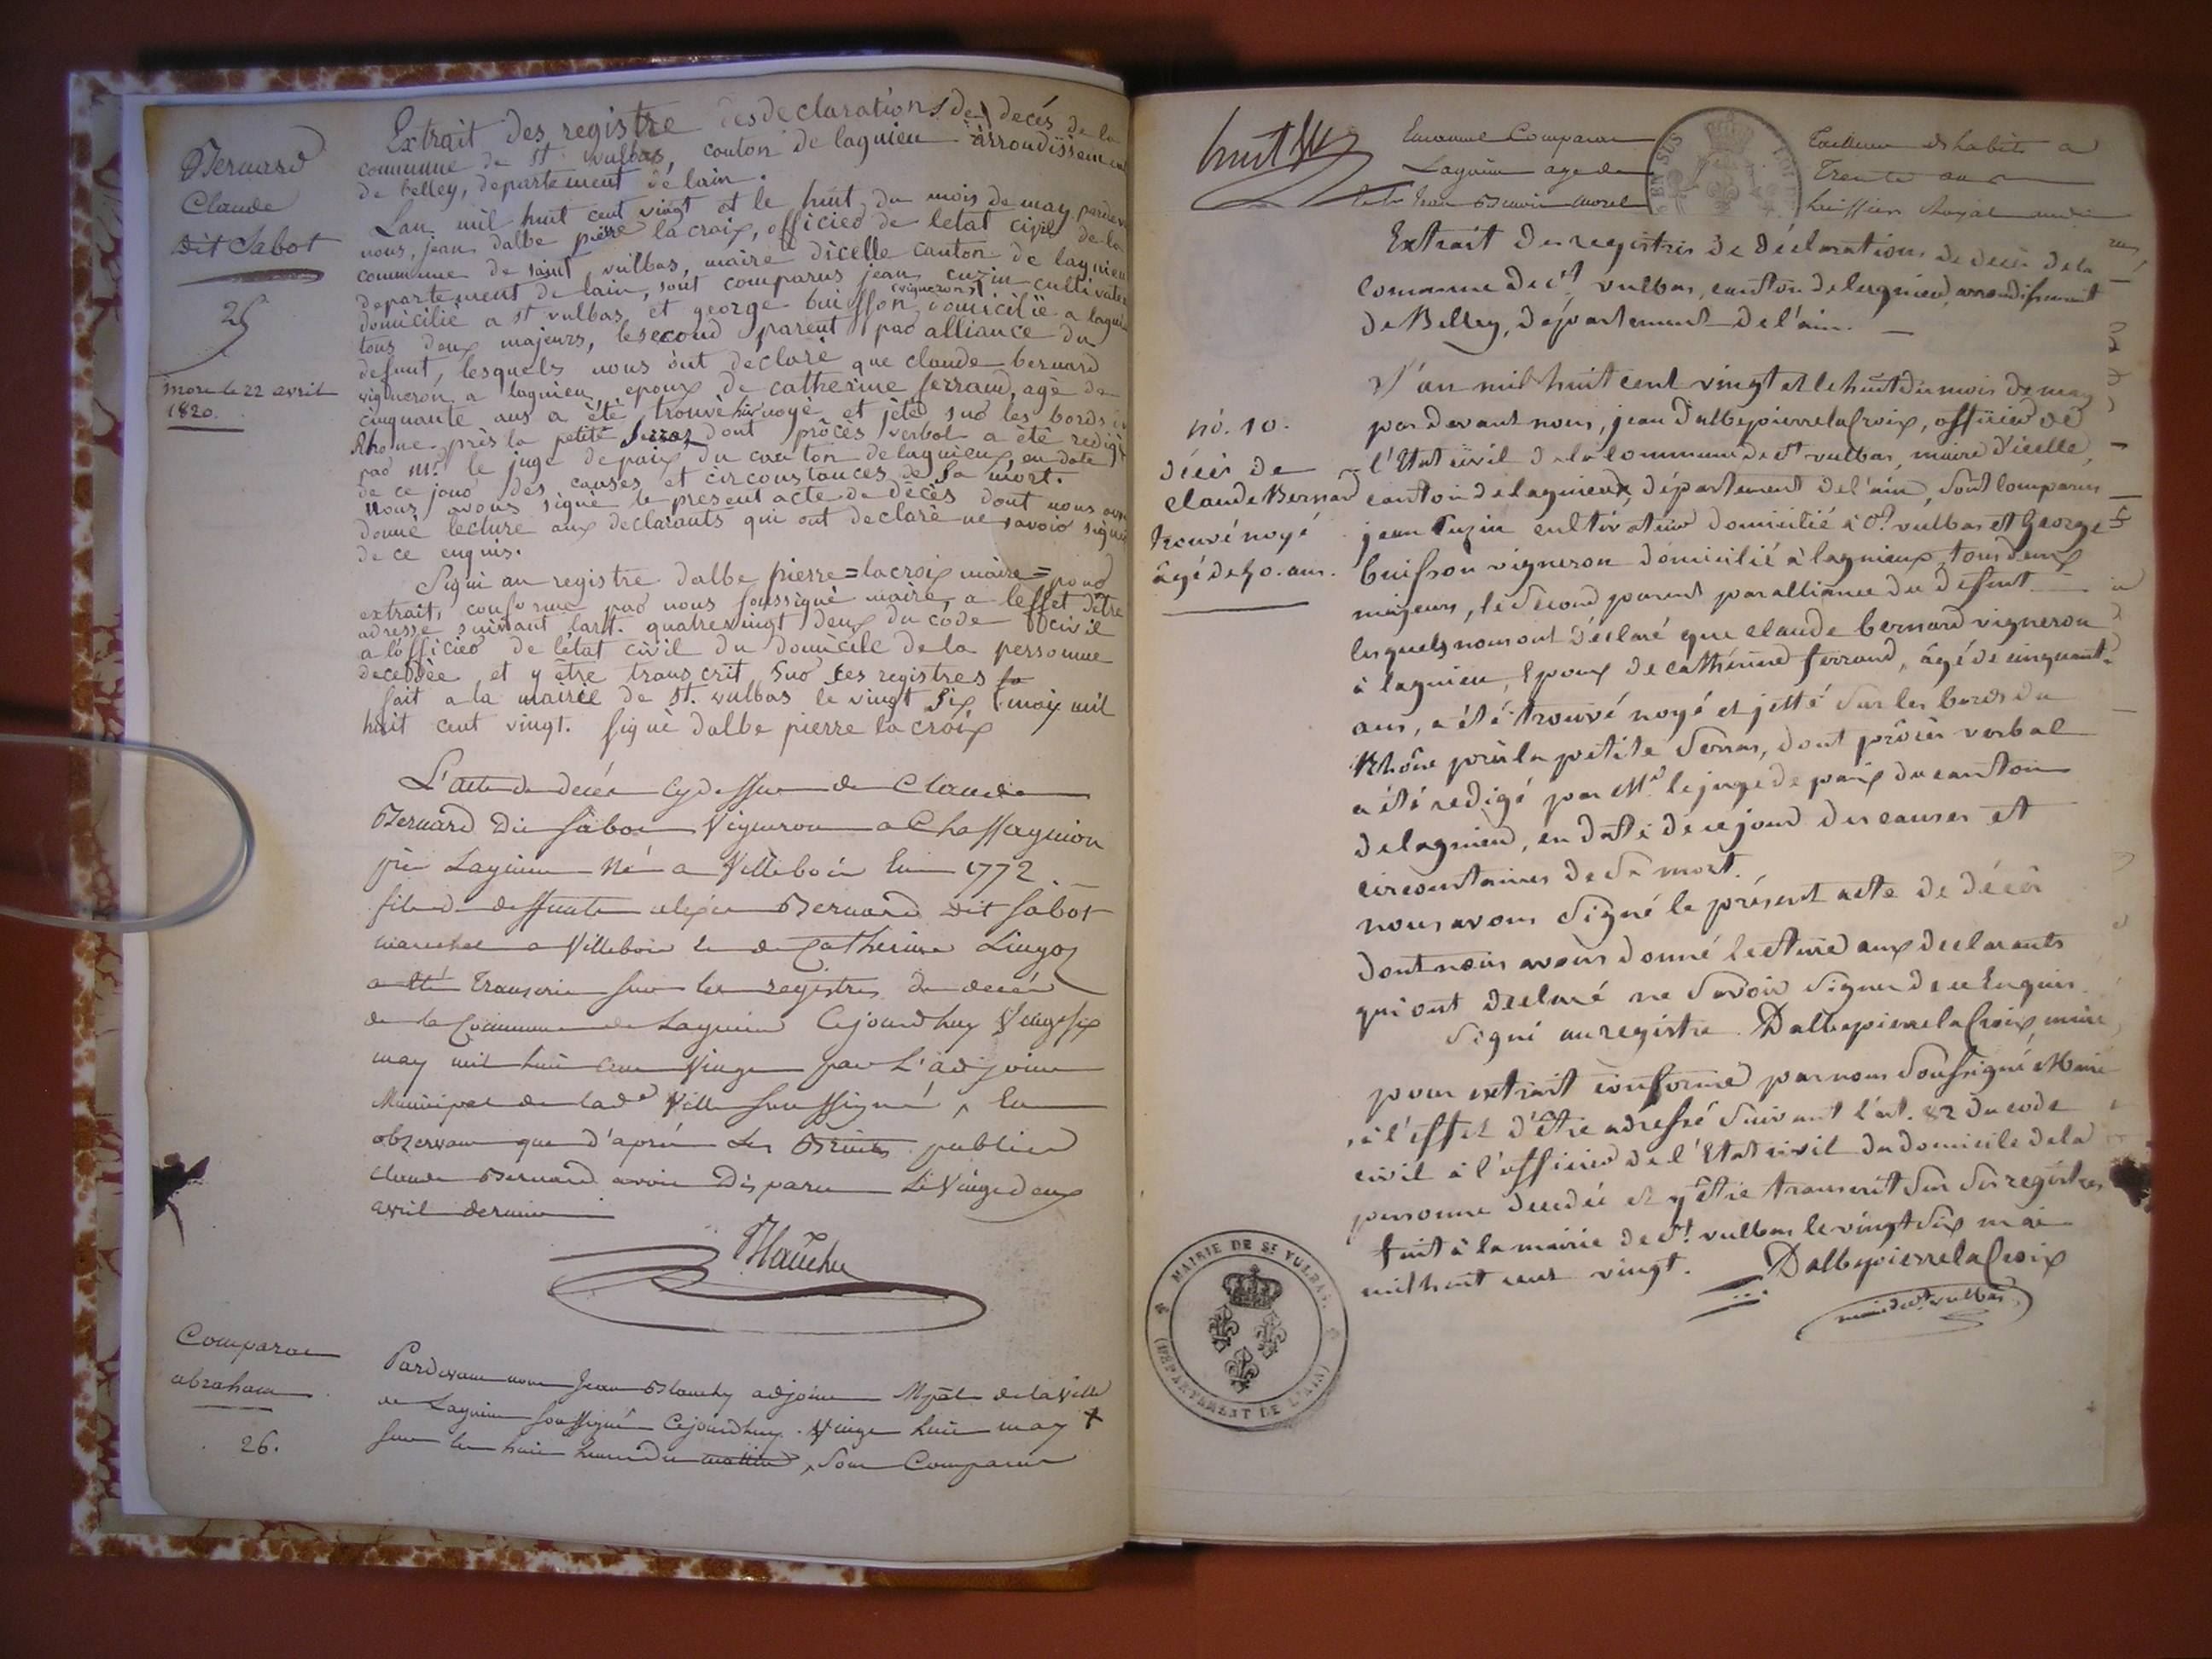 Bernard
Claude
Dit Sabot
25
mort le 22 avril
1820.
Extrait des registre des declarations de decés de la
commune de st vulbas, canton de lagnieu arrondissement
de belley, departement de lain.
Lan mil huit cent vingt et le huit du mois de may pardevant
nous, jean dalbe piere la croix, officier de letat civil de la
commune de saint vulbas, maire dicelle canton de lagnieu
departement de lain, sont comparus jean cuzin cultivateur
domicilié a st vulbas et george buisson (vigneron) domicilié a lagnieu
tous deux majeurs, lesecond parent par alliance du
defunt, lesquels nous ont declaré que claude bernard
vigneron a lagnieu, epoux de catherine ferrand, agé de
cinquante ans a été trouvé noyé et jeté sur les bords du
Rhone près la petite serraz dont procès verbal a été redigé
par mr. le juge de paix du canton de lagnieu, en date
de ce jour des causes et circonstances de sa mort.
Nous avons signé le present acte de décès dont nous avons
donné lecture aux declarants qui ont declaré ne savoir signer
de ce enquis.
Signé au registre dalbe pierre = lacroix maire = pour
extrait, conforme par nous soussigné maire, a leffet detre
adresse suivant lart. quatrevingt deux du code civil
a lofficier de létat civil du domicile de la personne
decedée et y être transcrit sur ses registres
fait a la mairie de st. vulbas le vingt six may mil
huit cent vingt. signé dalbe pierre la croix
L'acte de decés cydessus de Claude
Bernard Dit Sabot Vigneron a Chassagnion
près Lagnieu Né a Villebois lan 1772
fils de deffunt alexis Bernard dit Sabot
marechal a Villebois et de Catherine Lingoz
a été Transcrit sur les registres de decés
de la Commune de Lagnieu Cejourdhuy Vingt six
may mil huit cent Vingt par L'adjoint
Municipal de lade Ville soussigné, en
observant que d'aprés les Bruits publics
claude Bernard avoit Disparu Le Vingt deux
avril dernier
Blanchy
Comparat
abraham
26.
Pardevant nous Jean Blanchy adjoint Mpál de la Ville
de Lagnieu soussigné Cejourdhuy Vingt huit may +
sur les huit heures du matin, sont Comparus
huit
Emanuel Comparat
Lagnieu age de
Jean Benoit morel
Tailleur dhabits a
Trente ans
huissier Royal
Extrait des registres de déclarations de décès de la
commune de st. vulbas, canton de lagnieu, arrondissement
de Belley, département de l'ain.
nó. 10.
décès de
claude Bernard
trouvé noyé
âgé de 50. ans.
L'an mil huit cent vingt et le huit du mois de may
par devant nous, jean Dalbepierrelacroix, officier de
l'Etat civil de la commune de st vulbas, maire d'icelle,
canton de lagnieu, département de l'ain, sont comparus
jean Cuzin cultivateur domicilié à st. vulbas et George
buisson vigneron domicilié à lagnieux, tous deux
majeurs, le second parent par alliance du defunt
lesquels nous ont déclaré que claude bernard vigneron
à lagnieu, Epoux de cathérine ferrand, âgé de cinquante
ans, a été trouvé noyé et jetté sur les bords du
Rhône près la petite serras, dont procès verbal
a été redigé par Mr. le juge de paix du canton
de lagnieu, en date de ce jour des causes et
circonstances de sa mort.
nous avons signé le présent acte de décès
dont nous avons donné lecture aux declarants
qui ont déclaré ne savoir signer de ce Enquis.
signé au registre. Dalbepierrelacroix, maire
pour extrait conforme par nous soussigné Maire
à l'effet d'être adressé suivant l'art. 82 du code
civil à l'officier de l'Etat civil du domicile de la
personne decedée et y être transcrit sur ses registres
fait à la mairie de st. vulbas le vingt six mai
mil huit cent vingt. Dalbepierrelacroix
maire de st. vulbas
MAIRIE DE ST VULBAS.
(DÉPARTEMENT DE L'AIN)